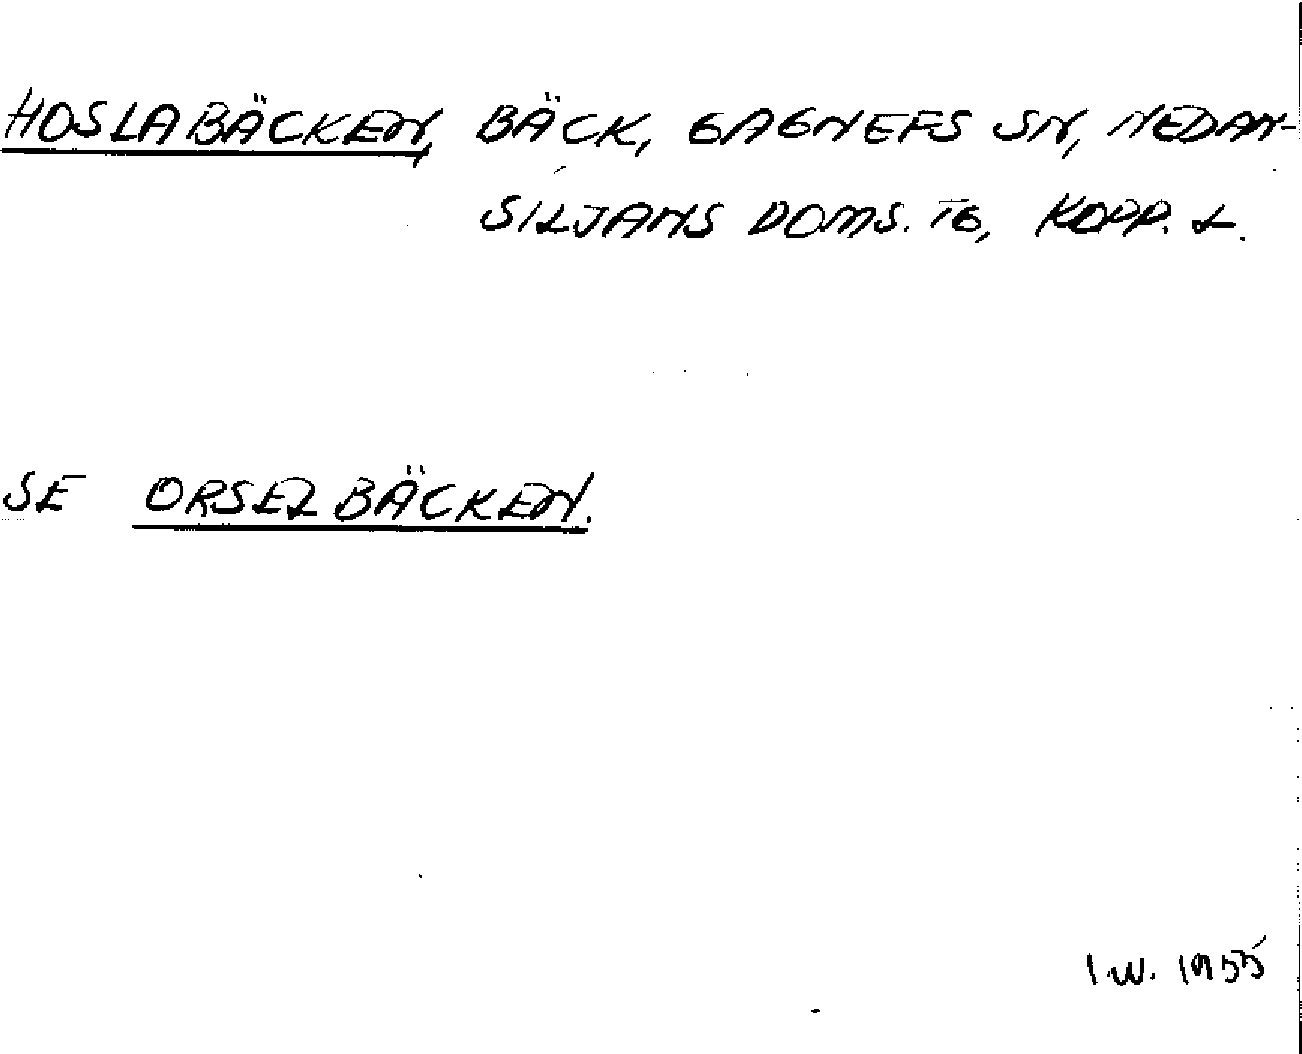 HOSLABÄCKEN, BÄCK, GAGNEFS SN, NEDAN-
SILJANS DOMS. TG, KOPP. L.
SE ORSELBÄCKEN.
I.W. 1955